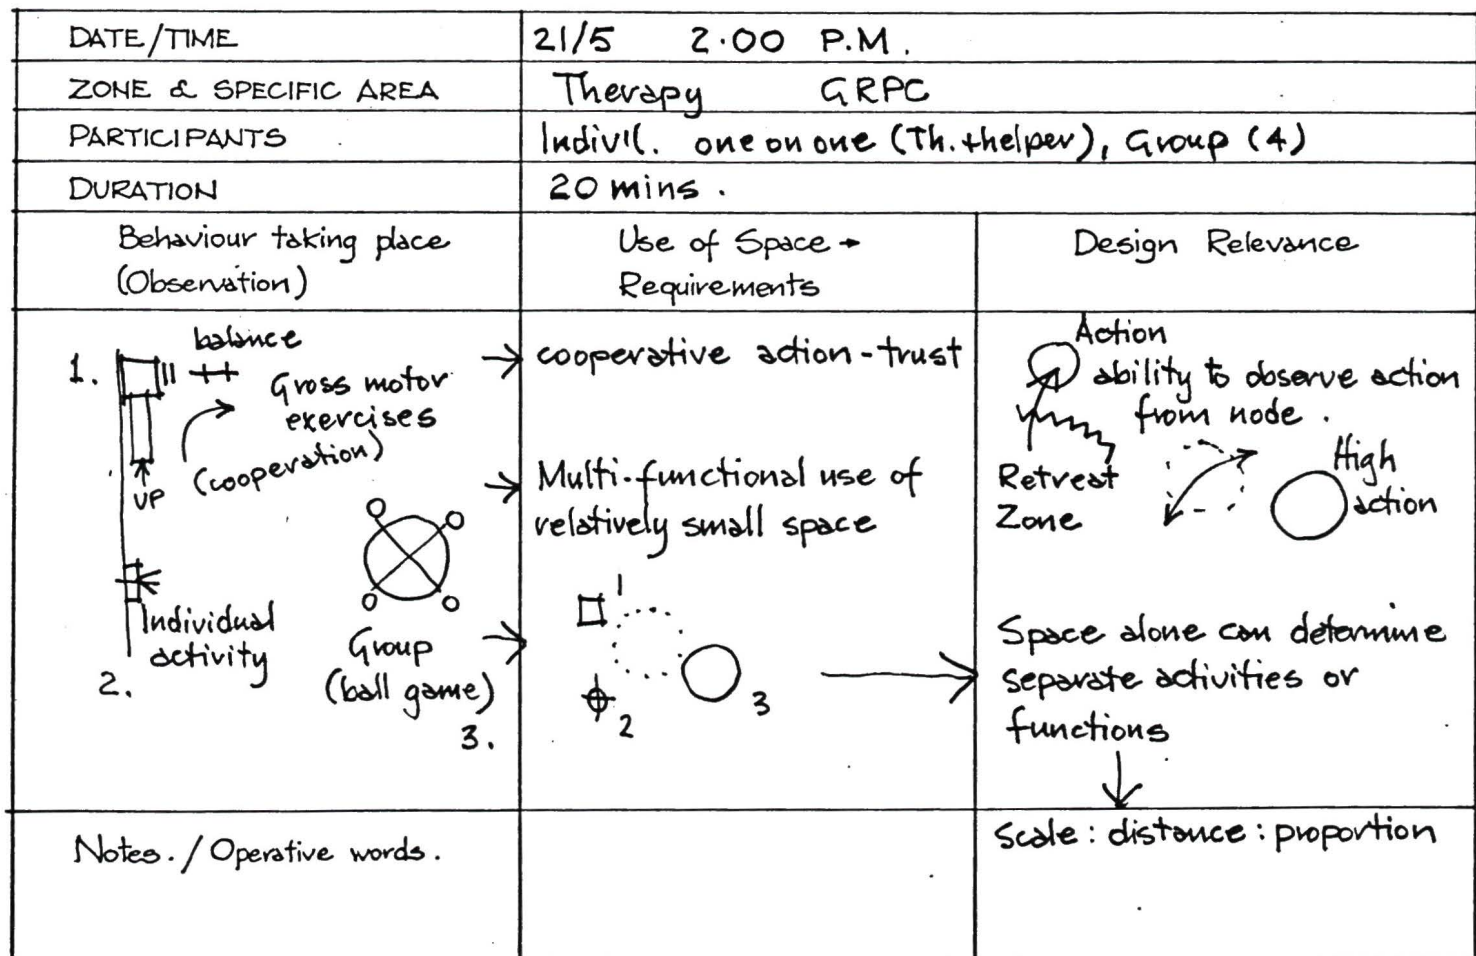 DATE/TIME
21/5 2.00 P.M.
ZONE & SPECIFIC AREA
Therapy GRPC
PARTICIPANTS
one on one (Th. + helper), Group (4)
DURATION
20 mins.
Behaviour taking place
(Observation)
Use of Space →
Requirements
Design Relevance
1.
balance
Gross motor
exercises
(cooperation)
UP
Individual
activity
2.
Group
(ball game)
3.
cooperative action - trust
Multi-functional use of
relatively small space
1
2
3
Action
ability to observe action
from node.
Retreat
Zone
High
action
Space alone can determine
separate activities or
functions
Notes. / Operative words.
Scale : distance : proportion